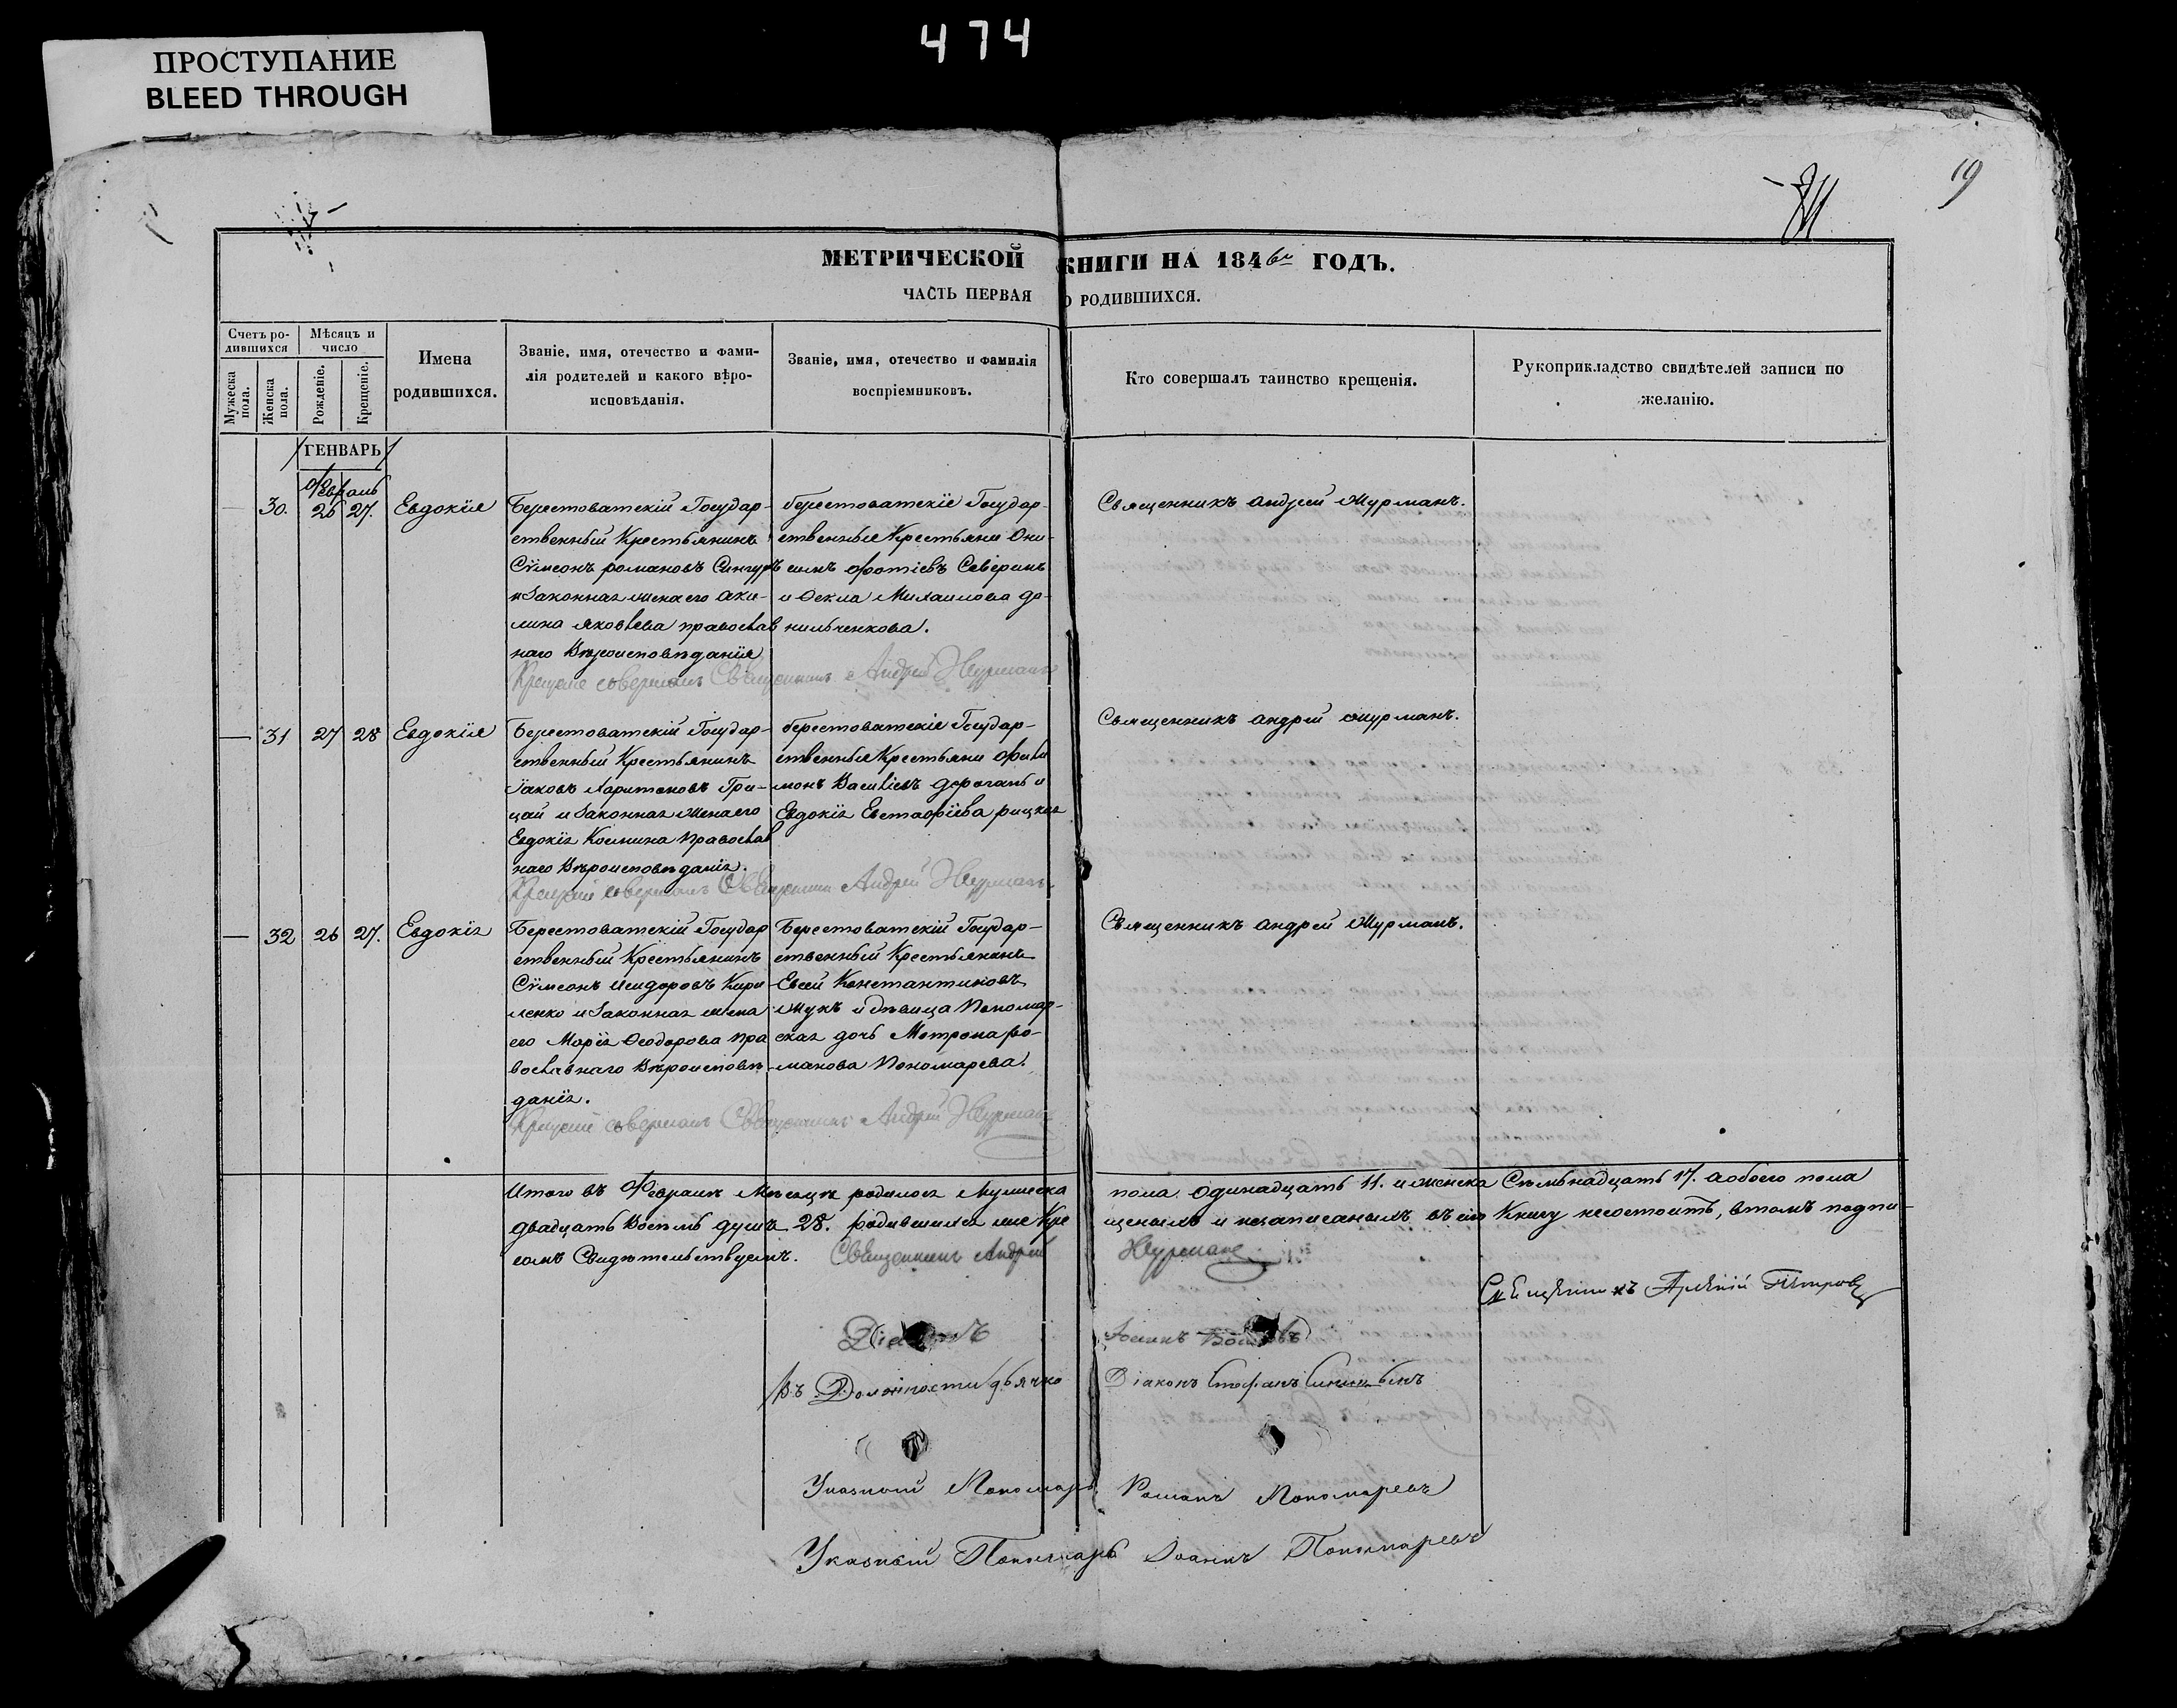 474
ПРОСТУПАНИЕ
BLEED THROUGH
19
МЕТРИЧЕСКОЙ КНИГИ НА 1846й ГОДЪ.
ЧАСТЬ ПЕРВАЯ О РОДИВШИХСЯ.
Счетъ ро-
дившихся
Мужеска пола.
Женска пола.
Мѣсяцъ и
число
Рожденіе.
Крещеніе.
Имена
родившихся.
Званіе, имя, отечество и фами-
лія родителей и какого вѣро-
исповѣданія.
Званіе, имя, отечество и фамилія
воспріемниковъ.
Кто совершалъ таинство крещенія.
Рукоприкладство свидѣтелей записи по
желанію.
ГЕНВАРЬ
Февраль
30. 26 27. Евдокія
Берестоватскій Государ-
ственный Крестьянинъ
Сѵмеонъ романовъ Сингуръ
и Законная жена его аки-
лина яковлева православ
наго Вѣроисповѣданія
Крещеніе совершалъ Священникъ Андрей Журманъ
берестоватскіе Государ-
ственные Крестьяни Они-
симъ фотіевъ Северинъ
и Ѳекла Михаилова до-
нильченкова.
Священникъ андрей Журманъ.
— 31 27 28 Евдокія
Берестоватскій Государ-
ственный Крестьянинъ
Іаковъ Харитоновъ Гри-
цай и Законная Жена его
Евдокія Космина Православ
наго Вѣроисповѣданія.
Крещеніе совершалъ Священникъ Андрей Журманъ
берестоватскіе Государ-
ственные Крестьяни Фили
монъ Васильевъ дорогань и
Евдокія Евстафіева рицкая
Священникъ андрей журманъ.
— 32 26 27. Евдокія
Берестоватскій Государ
ственный Крестьянинъ
Сѵмеонъ Исидоровъ Кири
ленко и Законная жена
его Марія Ѳеодорова пра
вославнаго Вѣроисповѣ-
данія.
Крещеніе совершалъ Священникъ Андрей Журманъ
Берестоватскій Государ-
ственный Крестьянинъ
Евсей Константиновъ
Жукъ и дѣвица Пономар-
ская дочь Матрона ро-
манова Пономарева.
Священникъ андрей Журманъ.
Итого въ Февралѣ Мѣсяцѣ родилось Мужеска пола одинадцать 11. и женска Семьнадцать 17. а обоего пола
двадцать Восемь душъ 28. родившихся не Кре щеныхъ и незаписаныхъ въ сію Книгу несостоитъ, втомъ подпи-
сомъ Свидѣтельствуемъ. Священникъ Андрей Журманъ
Священникъ Петровъ
Іоаннъ
Въ Должности дьячка Діаконъ Стефанъ
Указный Пономарь Романъ Пономаревъ
Указный Пономарь Іоаннъ Пономаревъ